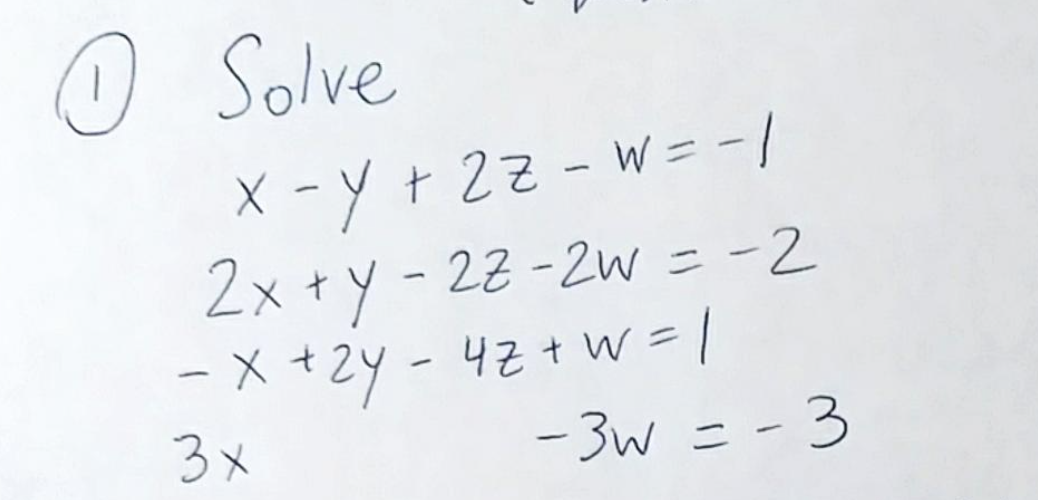 ① Solve
x - y + 2z - w = -1
2x + y - 2z - 2w = -2
- x + 2y - 4z + w = 1
3x - 3w = - 3